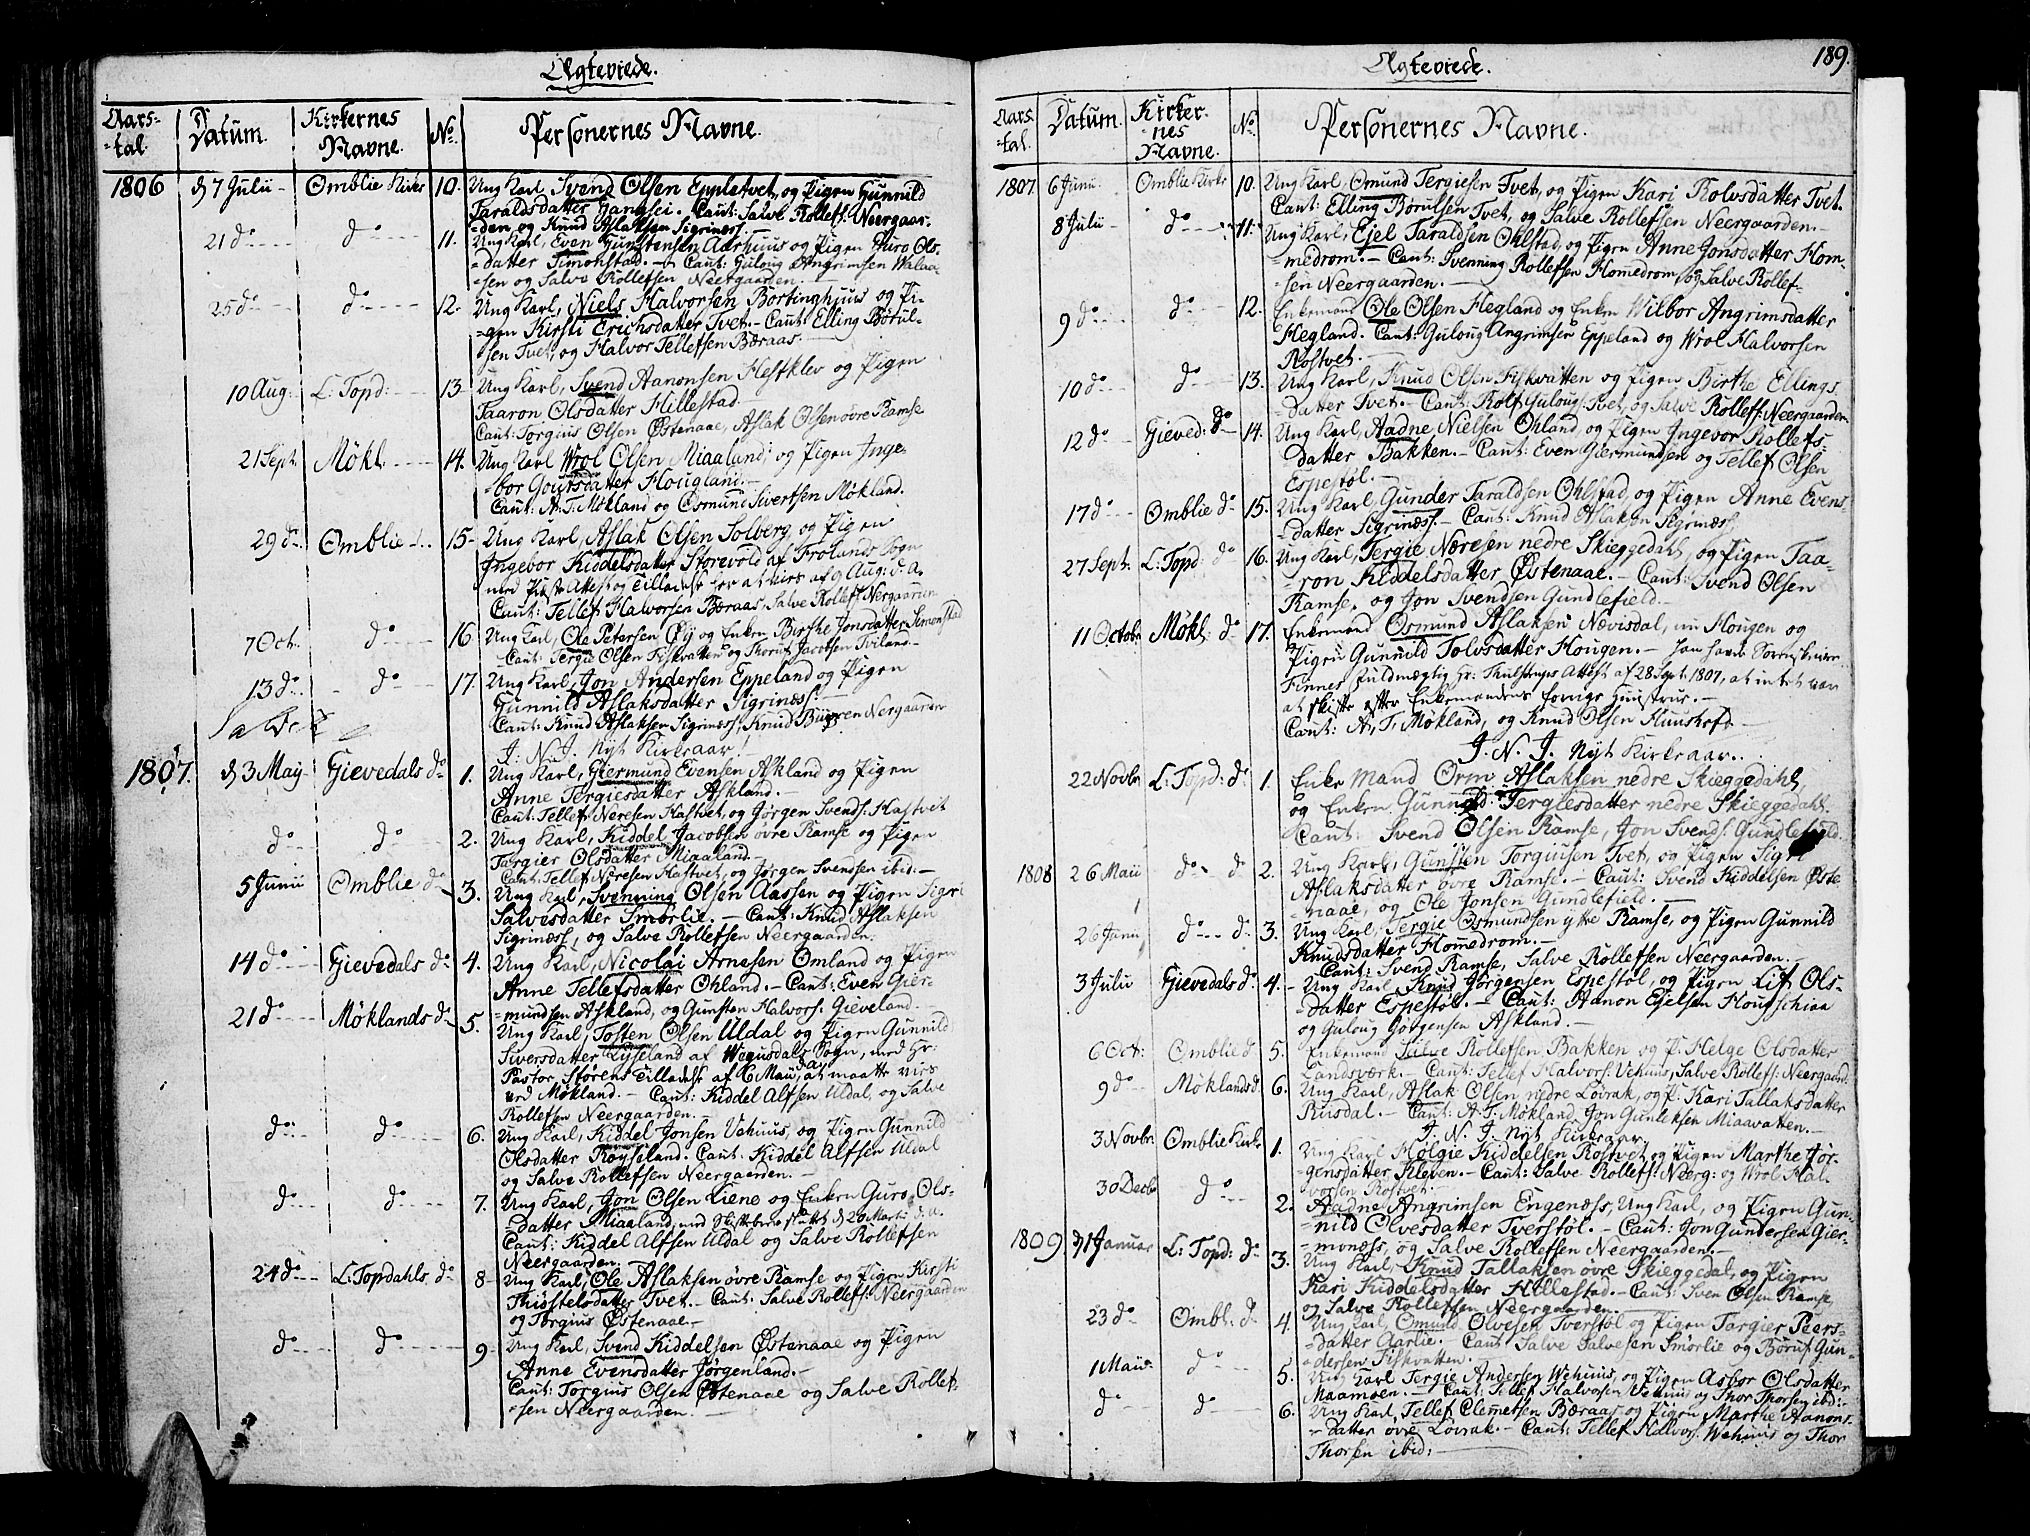 Ægteviede.
Aars-
-tal.
Datum.
Kirkernes
Navne.
No.
Personernes Navne.
1806
d 7 Julii - Omblie Kirke 10. Ung Karl, Svend Olsen Eppletvet, og Pigen Gunnild
Taraldsdatter Hangsei. Caut: Salve Rollefs: Neergaar-
-den, og Knud Aslaksen Sigrinæss.
21 do do 11. Ung Karl, Even Gunstensen Aarhuus og Pigen Siiro Ols-
-datter Simonstad. - Caut: Guloug Angrimsen Walaa-
-sen og Salve Rollefsen Neergaarden. -
25 do do 12. Ung Karl, Niels Halvorsen Bortinghuus og Pi-
-gen Kirsti Erichsdatter Tvet. - Caut: Elling Børul-
-sen Tvet, og Halvor Tellefsen Bæraas. -
10 Aug: L: Topd: 13. Ung Karl, Svend Aanonsen Hestklev og Pigen
Taaron Olsdatter Hillestad. -
Caut: Torgius Olsen Østenaae, Aslak Olsen øvre Ramse
21 Sept. Møkl. 14. Ung Karl Wrol Olsen Miaaland, og Pigen Inge-
-bor Goutsdatter Hougland. -
Caut: A. T. Møkland og Osmund Sivertsen Møkland.
29 do Omblie 15. Ung Karl, Aslak Olsen Solberg, og Pigen
Ingebor Kiddelsdatter Storevold af Frolands Sogn
med Præste Attest og Tilladelse her at vies af 9 Aug: d. A.
Caut: Tellef Halvorsen Bæraas, Salve Rollefs: Nergaarden
7 Oct. do 16. Ung Karl, Ole Petersen Øy og Enken Birthe Jonsdatter Simonstad
Caut: Tergie Olsen Fiskvatten og Thoruf Jacobsen
13 do do 17. Ung Karl, Jon Andersen Eppeland og Pigen
Gunnild Aslaksdatter Sigrinæss. -
Caut: Knud Aslaksen Sigrinæss, Knud Nergaarden
J. N. J. Nyt Kirkeaar!
1807. d 3 May Gievedals do 1. Ung Karl, Giermund Evensen Askland og Pigen
Anne Tergiesdatter Askland. -
Caut: Tellef Neresen Hastvet, og Jørgen Svends: Hastvet
do do 2. Ung Karl, Kiddel Jacobsen øvre Ramse og Pigen
Targier Olsdatter Miaaland.
Caut: Tellef Neresen Hastvet, og Jørgen Svenssen ibid. -
5 Junii Omblie do 3. Ung Karl, Svenning Olsen Aassen og Pigen Sigri
Salvesdatter Smørlie. - Caut: Knud Aslaksen
Sigrinæss, og Salve Rollefsen Neergaarden.
14 do Gievedals do 4. Ung Karl, Nicolai Arnesen Omland og Pigen
Anne Tellefsdatter Ohland. - Caut: Even Gier-
-mundsen Askland, og Gunsten Halvors: Gieveland. -
21 do Møklands do 5. Ung Karl, Tosten Olsen Uldal og Pigen Gunnild
Siversdatter Lyseland af Wegusdals Sogn, med Hr:
Pastor Størens Tilladelse af 16 Maii, at maatte vies
ved Møkland. - Caut: Kiddel Alfsen Uldal, og Salve
Rollefsen Neergaarden. -
do do 6. Ung Karl, Kiddel Jonsen Vehuus, og Pigen Gunnild
Olsdatter Røyseland. Caut: Kiddel Alfsen Uldal
og Salve Rollefsen Neergaarden. -
do do 7. Ung Karl, Jon Olsen Liene og Enken Guro Ols-
-datter Miaaland, med Skiftebrev sluttet d 20 Marti d. a.
Caut: Kiddel Alfsen Uldal og Salve Rollefsen
Neergaarden. -
24 do L: Topdahls do 8. Ung Karl, Ole Aslaksen øvre Ramse og Pigen Kirsti
Thiøstelsdatter Tvet. - Caut: Salve Rollefs: Neergaarden
og Torgius Østenaae. -
do do 9. Ung Karl, Svend Kiddelsen Østenaae og Pigen
Anne Evensdatter Jørgenland. -
Caut: Torgius Olsen Østenaae og Salve Rollef-
-sen Neergaarden. -
189.
Ægteviede.
Aars-
tal.
Datum.
Kirker-
nes
Navne.
No.
Personernes Navne.
1807. 6 Junii Omblie Kirke 10. Ung Karl, Omund Tergiesen Tvet, og Pigen Kari Rolvsdatter Tvet.
Caut: Elling Børulsen Tvet, og Salve Rollefsen Neergaarden. -
8 Julii do 11. Ung Karl, Ejel Taraldsen Ohlstad, og Pigen Anne Jonsdatter Hom-
-medrom. - Caut: Svenning Rollefsen Homedrom, og Salve Rollef-
-sen Neergaarden. -
9 do do 12. Enkemand Ole Olsen Hegland og Enken Wilbor Angrimsdatter
Hegland. Caut: Guloug Angrimsen Eppeland og Wrol Halvorsen
Rostvet. -
10 do do 13. Ung Karl, Knud Olsen Fiskvatten og Pigen Birthe Ellings-
-datter Tvet. - Caut: Rolf Guloug: Tvet, og Salve Rollefs: Neergaarden.
12 do Gieved: do 14. Ung Karl, Aadne Nielsen Ohland, og Pigen Ingebor Rollefs-
-datter Bakken. - Caut: Even Giermundsen og Tellef Olsen
Espestøl. -
17 do Omblie do 15. Ung Karl Gunder Taraldsen Ohlstad, og Pigen Anne Evens-
-datter Sigrinæss. - Caut: Knud Aslaksen Sigrinæss,
27 Sept. L: Topd: do 16. Ung Karl, Tergie Næresen nedre Skieggedahl, og Pigen Taa-
-ron Kiddelsdatter Østenaae. - Caut: Svend Olsen
Ramse, og Jon Svendsen Gundlefield. -
11 Octobr Møkl: do 17. Enkemand Osmund Aslaksen Nævisdal, nu Hougen og
Pigen Gunnild Tolvsdatter Hougen. - Han havde Sorenskriver
Finnes Fuldmægtig Hr: Attest af 28 Sept. 1807, at intet var
at skifte efter Enkemandens forrige Hustrue. -
Caut: A. T. Møkland, og Knud Olsen Huusheføe -
J. N. J. Nyt Kirkeaar.
22 Novbr L: Topd: do 1. Enke Mand Orm Aslaksen nedre Skieggedahl,
og Enken Gunnild Tergiesdatter nedre Skieggedahl
Caut: Svend Olsen Ramse, Jon Svends: Gundlefield.
1808 26 Maii do do 2. Ung Karl, Gunsten Torguusen Tvet, og Pigen Sigri
Aslaksdatter øvre Ramse. - Caut: Svend Kiddelsen Øste-
-naae, og Ole Jonsen Gundlefield. -
26 Junii do do 3. Ung Karl, Tergie Osmundsen ytre Ramse, og Pigen Gunnild
Knudsdatter Homedrom. -
Caut: Svend Ramse, Salve Rollefsen Neergaarden. -
3 Julii Gievedals do 4. Ung Karl, Knud Jørgensen Espestøl, og Pigen Lif Ols-
-datter Espestøl. - Caut: Aanon Ejelsen Houschiaa
og Guloug Jørgensen Askland. -
6 Oct: Omblie do 5. Enkemand Salve Rollefsen Bakken og P. Helge Olsdatter
Landsværk. - Caut: Tellef Halvors: Vehuus, Salve Rollefs: Neergaard.
9 do Møklands do 6. Ung Karl, Aslak Olsen nedre Løvrak, og P. Kari Tallaksdatter
Risdal. - Caut: A. T. Møkland, Jon Gunleksen Miaavatten. -
J. N. J. Nyt Kirkeaar.
3 Novbr Omblie Kirke 1. Ung Karl Holgie Kiddelsen Rostvet og Pigen Marthe Jør-
-gensdatter Kleven. - Caut: Salve Rollefs: Neerg: og Wrol Hal-
-vorsen Rostvet.
30 Decbr do 2. Aadne Angrimsen Engenæss, Ung Karl, og Pigen Gun-
-nild Olvesdatter Tverstøl. - Caut: Jon Gundersen Gier-
-monæss, og Salve Rollefsen Neergaarden. -
1809 d 1 Januar L: Topd: do 3. Ung Karl, Knud Tallaksen øvre Skieggedal, og Pigen
Kari Kiddelsdatter Hillestad. - Caut: Sven Olsen Ramse,
og Salve Rollefsen Neergaarden. -
23 do Ombl: do 4. Ung Karl, Omund Olvesen Tverstøl og Pigen Targier Peers-
-datter Aarlie. - Caut Salve Salvesen Smørlie og Børuf Gun-
-dersen Fiskvatten. -
1 Maii do 5. Ung Karl Tergie Andersen Wehuus, og Pigen Asbor Olsdatter
Maamoen. - Caut: Tellef Halvorsen Vehuus og Thor Thorsen ibid: -
do do 6. Ung Karl, Tellef Clemetsen Bæraas og Pigen Marthe Aanons-
-datter øvre Løvrak. - Caut: Tellef Halvors: Wehuus og Thor
Thorsen ibid: -